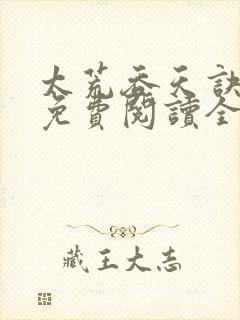 太荒吞天訣
免費閱讀全
藏王大志